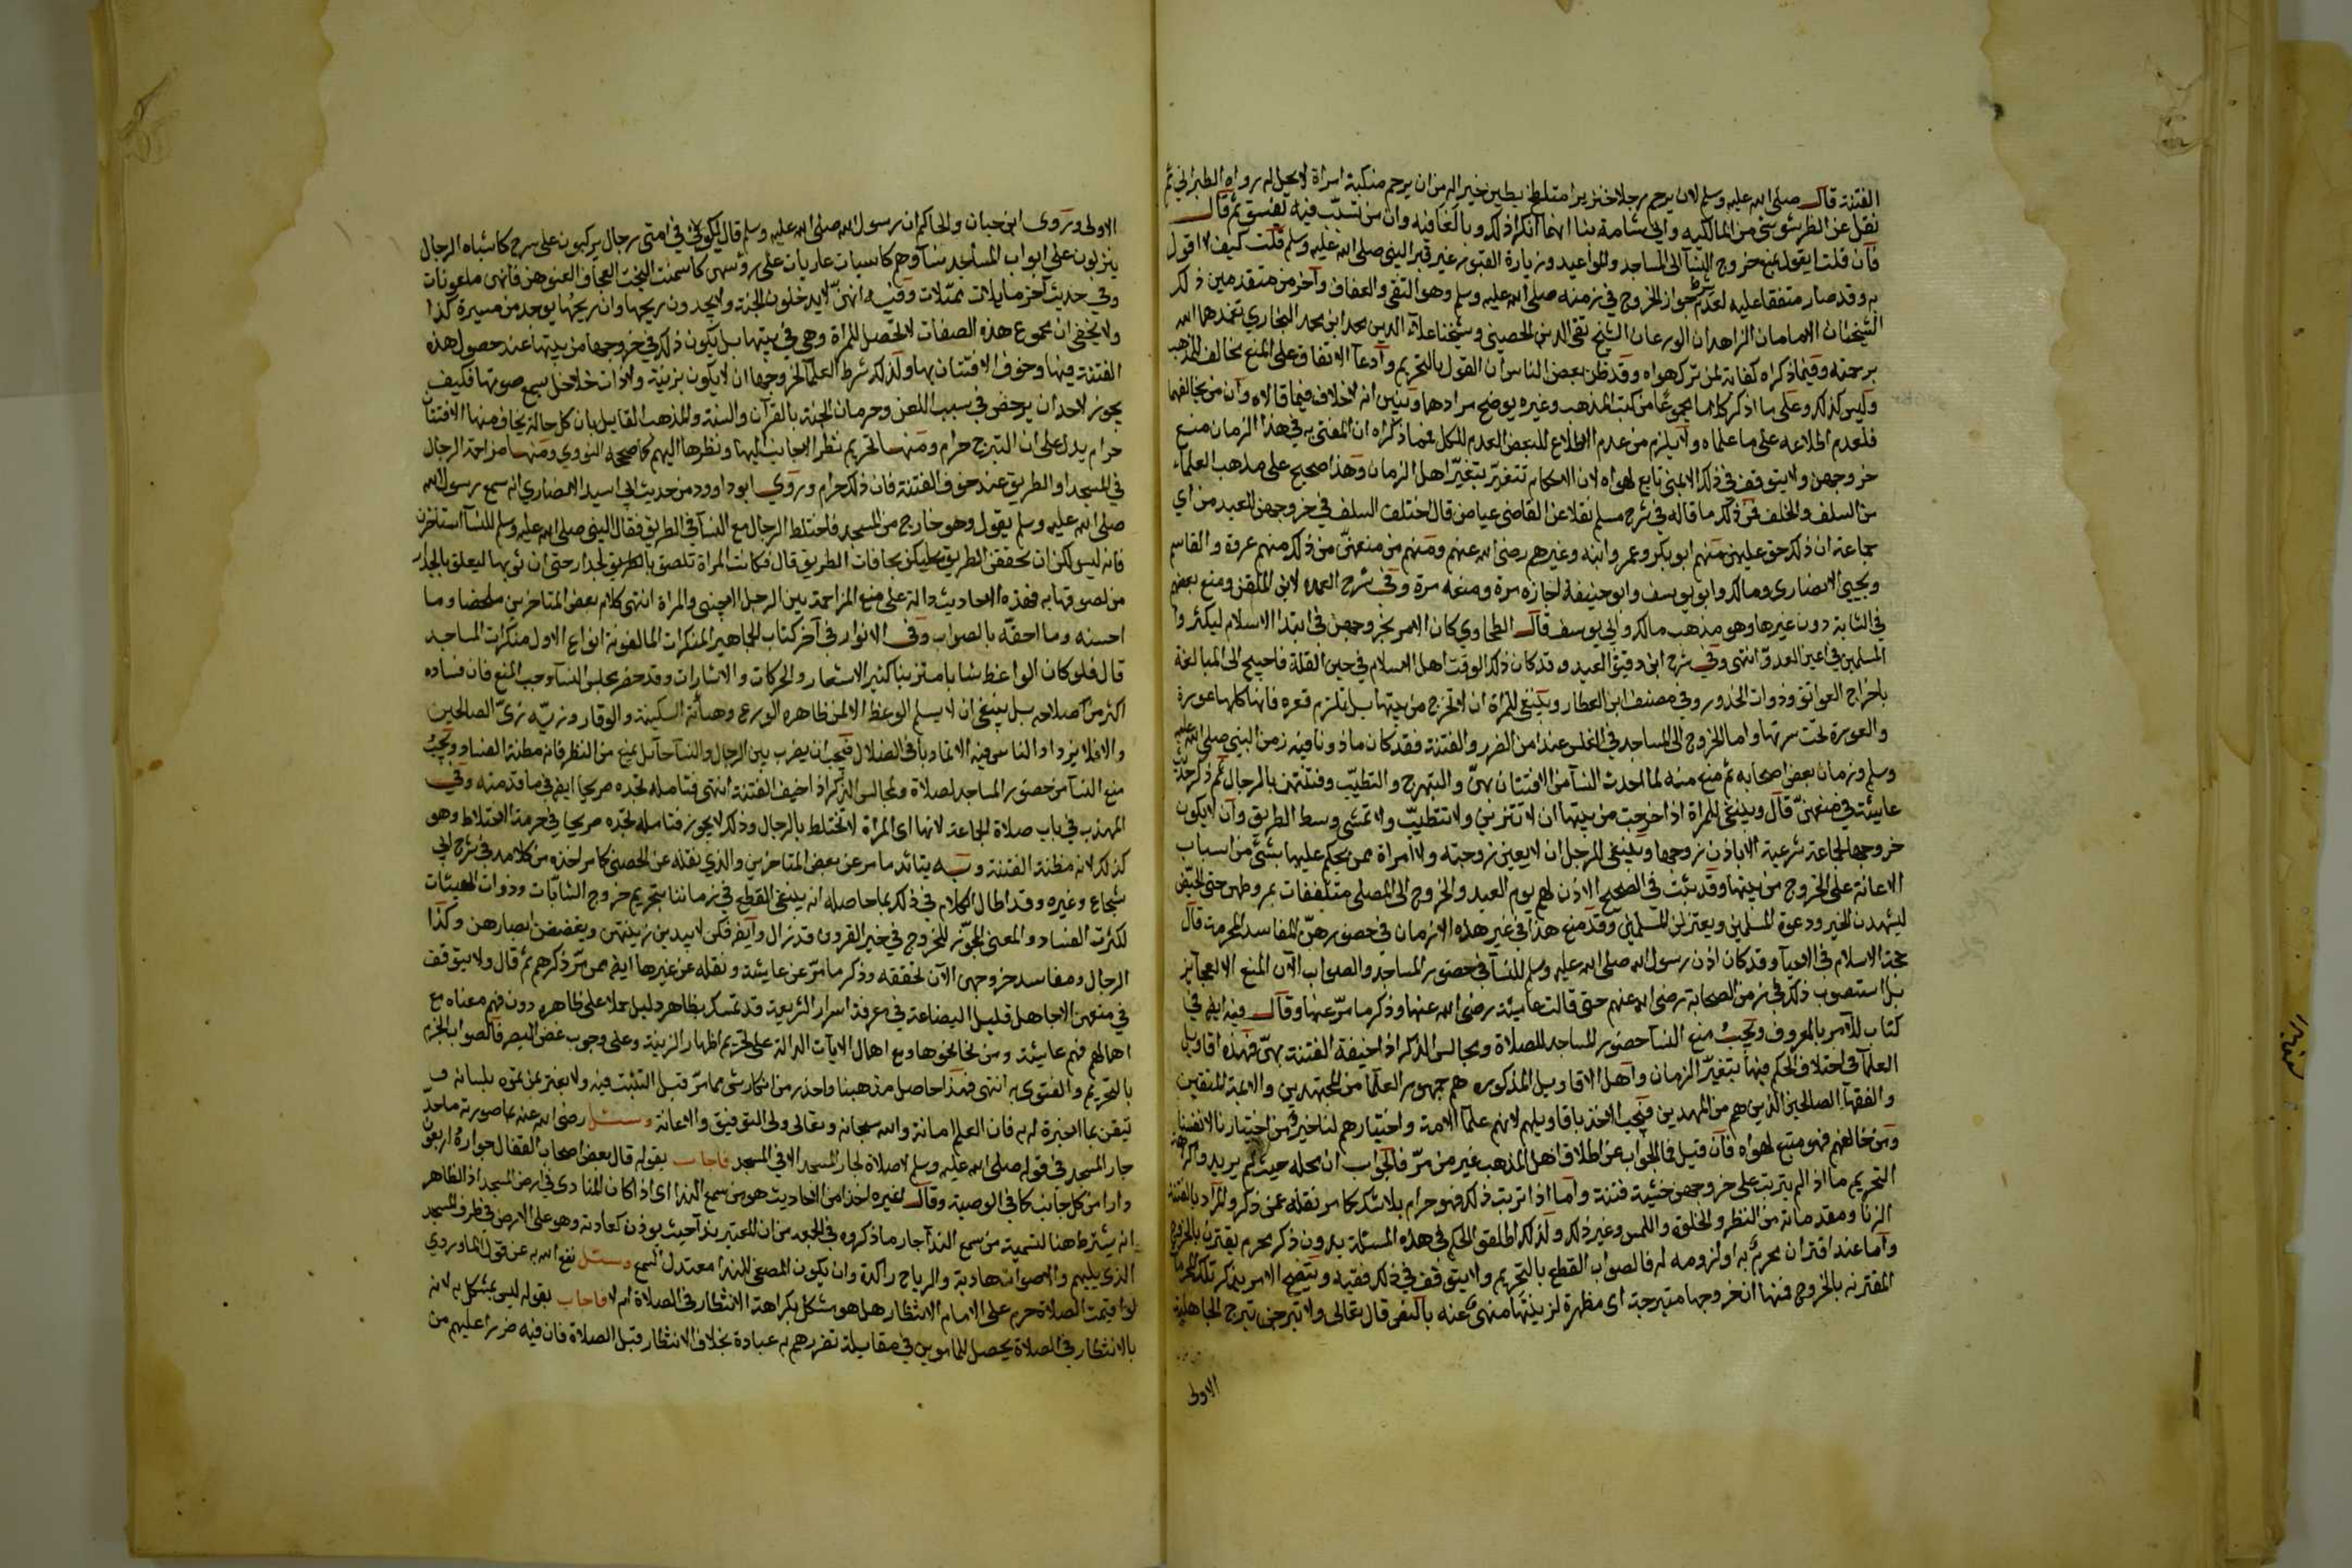 الفتنة قال صلى الله عليه وسلم لان يرحم رجلا خنزيرا متلطخ بطين خير له من ان يرحم منكبه امراة لا يحل له رواه الطبراني ثم
نقل عن الطرشوشي من المالكية وابي شامة منا انهما انكرا ذلك وبالغا فيه وان من تسبب فيه لفسق ثم قال
فان قلت ايقول بمنع خروج النسآ الى المساجد والمواعيد وزيارة القبور غير قبر النبي صلى الله عليه وسلم قلت كيف لا اقول
به وقد صار متفقا عليه لعدم شرط جواز الخروج في زمنه صلى الله عليه وسلم وهو التقى والعفاف وآخر من متقدمين ذلك
الشيخان الامامان الزاهدان الورعان الشيخ تقي الدين الحصيني وشيخنا علآء الدين محمد ابن محمد البخاري تغمدهما الله
برحمته وفيما ذكراه كفاية لمن ترك هواه وقد ظن بعض الناس ان القول بالتحريم وادعآ الاتفاق على المنع مخالف للمذهب
وليس كذلك وعلى ما اذكر كلاما مجموعا من كتب المذهب وغيره يوضح مرادهما ويبين انه لا خلاف فيما قالاه وان من يخالفهما
فلعدم اطلاعه على ما علماه ولا يلزم من عدم الاطلاع للبعض العدم للكل فما ذكراه ان المفتى به في هذا الزمان منع
خروجهن ولا يتوقف في ذلك الا غبي تابع لهواه لان الاحكام تتغير بتغير اهل الزمان وهذا صحيح على مذهب العلماء
من السلف والخلف فمن ذكر ما قاله في شرح مسلم نقلا عن القاضي عياض قال اختلف السلف في خروجهن للعيد من اي
جماعة ان ذلك حق عليهن منهم ابو بكر وعمر وابنه وغيرهم رضي الله عنهم ومنهم من منعهن من ذلك منهم عروة والقاسم
ويحيى الانصاري ومالك وابو يوسف وابو حنيفة اجازه مرة ومنعه مرة وفي شرح العمدة لابن الملقن ومنع بعضهم
في الشابة دون غيرها وهو مذهب مالك وابي يوسف قال الطحاوي كان الامر بخروجهن في ابتدا الاسلام ليكثروا
المسلمين في اعين العدو انتهى وفي شرح ابن دقيق العيد وقد كان ذلك الوقت اهل الاسلام في حين القلة فاحتيج الى المبالغة
باخراج العواتق وذوات الخدور وفي مصنف ابن العطار وينبغي للمراة ان لا تخرج من بيتها بل تلزم قعره فانها كلها عورة
والعورة تحت سترتها واما الخروج الى المساجد في الغلس عند امن الضرر والفتنة فقد كان ماذونا فيه زمن النبي صلى الله عليه
وسلم وزمان بعض اصحابه ثم منع منه لما احدث النسآ من الافتتان بهن والتبهرج والتطيب وفتنتهن بالرجال ثم ذكر حديث
عايشة في منعهن قال وينبغي للمراة اذا خرجت من بيتها ان لا تتزين ولا تتطيب ولا تمشي وسط الطريق وان لا يكون
خروجها لحاجة شرعية الا باذن زوجها وينبغي للرجل ان لا يعين زوجته ولا امراة ممن يحكم عليها بشئ من اسباب
الاعانة على الخروج من بيتها وقد ثبت في الصحيح الاذن لهم يوم العيد والخروج الى المصلى متلففات بمروطهن حتى الحيض
ليشهدن الخير ودعوة المسلمين ويعتزلن المسلمين وقد منع هذا في غير هذه الازمان في حضورهن المفاسد المحرمة قال
حجة الاسلام في الاحيآ وقد كان اذن رسول الله صلى الله عليه وسلم للنسآ في حضور المساجد والصواب الآن المنع الا العجايز
بل استصوب ذلك في زمن الصحابة رضي الله عنهم حتى قالت عايشة رضي الله عنها وذكر ما مر عنها وقال فيه ايض في
كتاب الامر بالمعروف ويجب منع النسآ حضور المساجد للصلاة ومجالس الذكر اذا خيفة الفتنة بهن فهذه اقاويل
العلمآ في اختلاف الحكم فيها بتغير الزمان واهل الاقاويل المذكورة هم جمهور العلمآ من المجتهدين والايمة المتقين
والفقهآ الصالحين الذين هم من الممهدين فيجب الاخذ باقاويلهم لانهم علم الامة واختيارهم لنا خير من اختيارنا لانفسنا
ومن خالفهم فهو متبع لهواه فان قيل فما الجواب عن اطلاق اهل المذهب غير من مر فالجواب ان محله حيث لم يريدوا كراهة
التحريم ما اذا لم يترتب على خروجهن خشية فتنة واما اذا ترتب ذلك فهو حرام بلا شك كما مر نقله عمن ذكر والمراد بالفتنة
الزنا ومقدماته من النظر والخلوة واللمس وغير ذلك ولذلك اطلقوا الحكم في هذه المسئلة بدون ذكر محرم يقترن بالخروج
واما عند اقتران محرم به او لزومه له فالصواب القطع بالتحريم ولا يتوقف في ذلك فقيه ويتضح الامر بذكر تلك المحرمات
المقترنه بالخروج فمنها ان خروجها متبرجة اى مظهرة لزينتها منهى عنه بالنص قال تعالى ولا تبرجن تبرج الجاهلية
الاولى
الاولى وروى ابن حبان والحاكم ان رسول الله صلى الله عليه وسلم قال يكون في امتي رجال يركبون على سرج كاشباه الرجال
ينزلون على ابواب المساجد نسآوهم كاسيات عاريات على رؤسهن كاسنمت البخت العجاف العنوهن فانهن ملعونات
وفي حديث آخر مايلات مميلات وفيه انهن لا يدخلون الجنة ولا يجدون ريحها وان ريحها يوجد من مسيرة كذا
ولا يخفى ان مجموع هذه الصفات لا تحصل للمراة وهي في بيتها بل يكون ذلك في خروجها من بيتها عند حصول هذه
الفتنة فيها وخوف الافتتان بها ولذلك شرط العلمآ لخروجها ان لا يكون بزينة ولا ذات خلاخل يسمع صوتها فكيف
يجوز لاحد ان يرخص في سبب اللعن وحرمان الجنة بالقرآن والسنة والمذهب القايل بان كل حالة يخاف منها الافتتان
حرام يدل على ان التبرج حرام ومنها تحريم نظر الاجانب اليها ونظرها اليهم كما صححه النووي ومنها مزاحمة الرجال
في المسجد او الطريق عند خوف الفتنة فان ذلك حرام وروى ابو داوود من حديث ابي اسيد الانصاري انه سمع رسول الله
صلى الله عليه وسلم يقول وهو خارج من المسجد فاختلط الرجال مع النسآ في الطريق فقال النبي صلى الله عليه وسلم للنسآ استاخرن
فانه ليس لكن ان تحققن الطريق عليكن بحافات الطريق قال فكانت المراة تلصق بالطريق لجدار حتى ان ثوبها ليعلق بالجدار
من لصوقها به فهذه الاحاديث دالة على منع المزاحمة بين الرجل الاجنبي والمراة انتهى كلام بعض المتاخرين ملخصا وما
احسنه وما احقه بالصواب وفي الانوار في آخر كتاب الجاهير المنكرات المالفونة انواع الاول منكرات المساجد
قال فلو كان الواعظ شابا متزينا كثير الاشعار والحركات والاشارات وقد حضر مجلس النسآ وجب المنع فان فساده
اكثر من اصلاحه بل ينبغي ان لا يسلم الوعظ الا لمن ظاهره الورع وهيأته السكينة والوقار وزيه زى الصالحين
والا فلا يزداد الناس فيه الا تماديا في الضلال فيجب ان يضرب بين الرجال والنسآ حآئل يمنع من النظر فانه مظنة الفساد ويجب
منع النسآ من حضور المساجد لصلاة ولمجالس الذكر اذا خيف الفتنة انتهى فتامله تجده صريحا ايض في ما قدمته وفي
المهذب في باب صلاة الجماعة لانها اى المراة لا تختلط بالرجال وذلك لا يجوز فتامله تجده صريحا في حرمة الاختلاط وهو
كذلك لانه مظنة الفتنة وبه يتائد ما مر عن بعض المتاخرين والذي نقله عن الحصني كما مر اخذه من كلامه في شرح ابي
شجاع وغيره وقد اطال الكلام في ذلك بما حاصله انه ينبغي القطع في زماننا بتحريم خروج الشابات وذوات الهيئات
لكثرت الفساد والمعنى المجوز للخروج في خير القرون قد زال وايض فكن لا يبدين زينتهن ويغضضن ابصارهن وكذا
الرجال ومفاسد خروجهن الآن محققه وذكر ما مر عن عايشة ونقله عن غيرها ايض ممن مر ذكرهم ثم قال ولا يتوقف
في منعهن الا جاهل قليل البضاعة في معرفة اسرار الشريعة قد تمسك بظاهر دليل حملا على ظاهره دون فهم معناه مع
اهمالهم فهم عايشة ومن نحا نحوها ومع اهمال الايات الدالة على تحريم اظهار الزينة وعلى وجوب غض البصر فالصواب الجزم
بالتحريم والفتوى به انتهى فهذا حاصل مذهبنا واحذر من انكار شئ مما مر قبل التثبت فيه ولا يغتر بمن يموه بلسانه ف
تيقن بما الخيرة له به فان العلم امانة والله سبحانه وتعالى ولى التوفيق والاعانة وسئل رضي الله عنه بما صورته ما حد
جار المسجد في قوله صلى الله عليه وسلم لا صلاة لجار المسجد الا في المسجد فاجاب بقوله قال بعض اصحاب القفال جواره اربعون
دارا من كل جانب كما في الوصية وقال غيره اخذا من الاحاديث هو من سمع الندا اى اذا كان المنادى في ارض المسجد اذ الظاهر
انه يشترط هنا لتسمية من سمع الندآ جار ما ذكروه في الجمعه من ان المعتبر ندآ حيث يوذن كعادته وهو على الارض في طرف المسجد
الذي يليهم والاصوات هادية والرياح راكدة وان يكون المصغى للندا معتدل السمع وسئل نفع الله به عن قول الماوردي
لو اقيمت الصلاة حرم على الامام الانتظار هل هو مشكل بكراهة الانتظار في الصلاة ام لا فاجاب بقوله ليس بمشكل به لانه
بالانتظار في الصلاة يحصل للمامومين في مقابلة تضررهم به عبادة بخلاف الانتظار قبل الصلاة فان فيه ضررا عليهم من